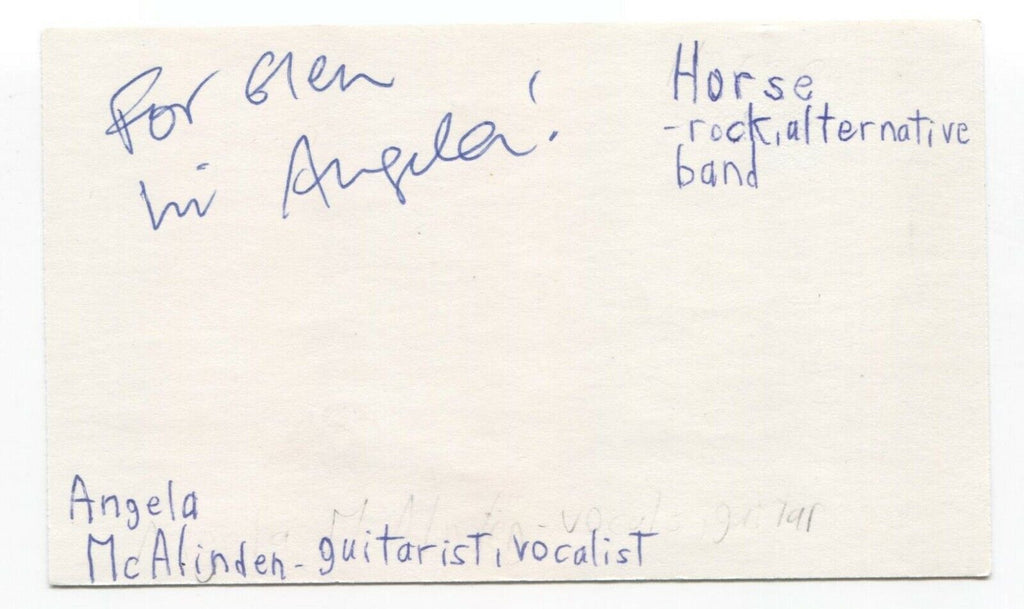 For Glen
hi Angela!
Horse
-rock, alternative
band
Angela
McAlinden - vocal - guitar
McAlinden - guitarist, vocalist